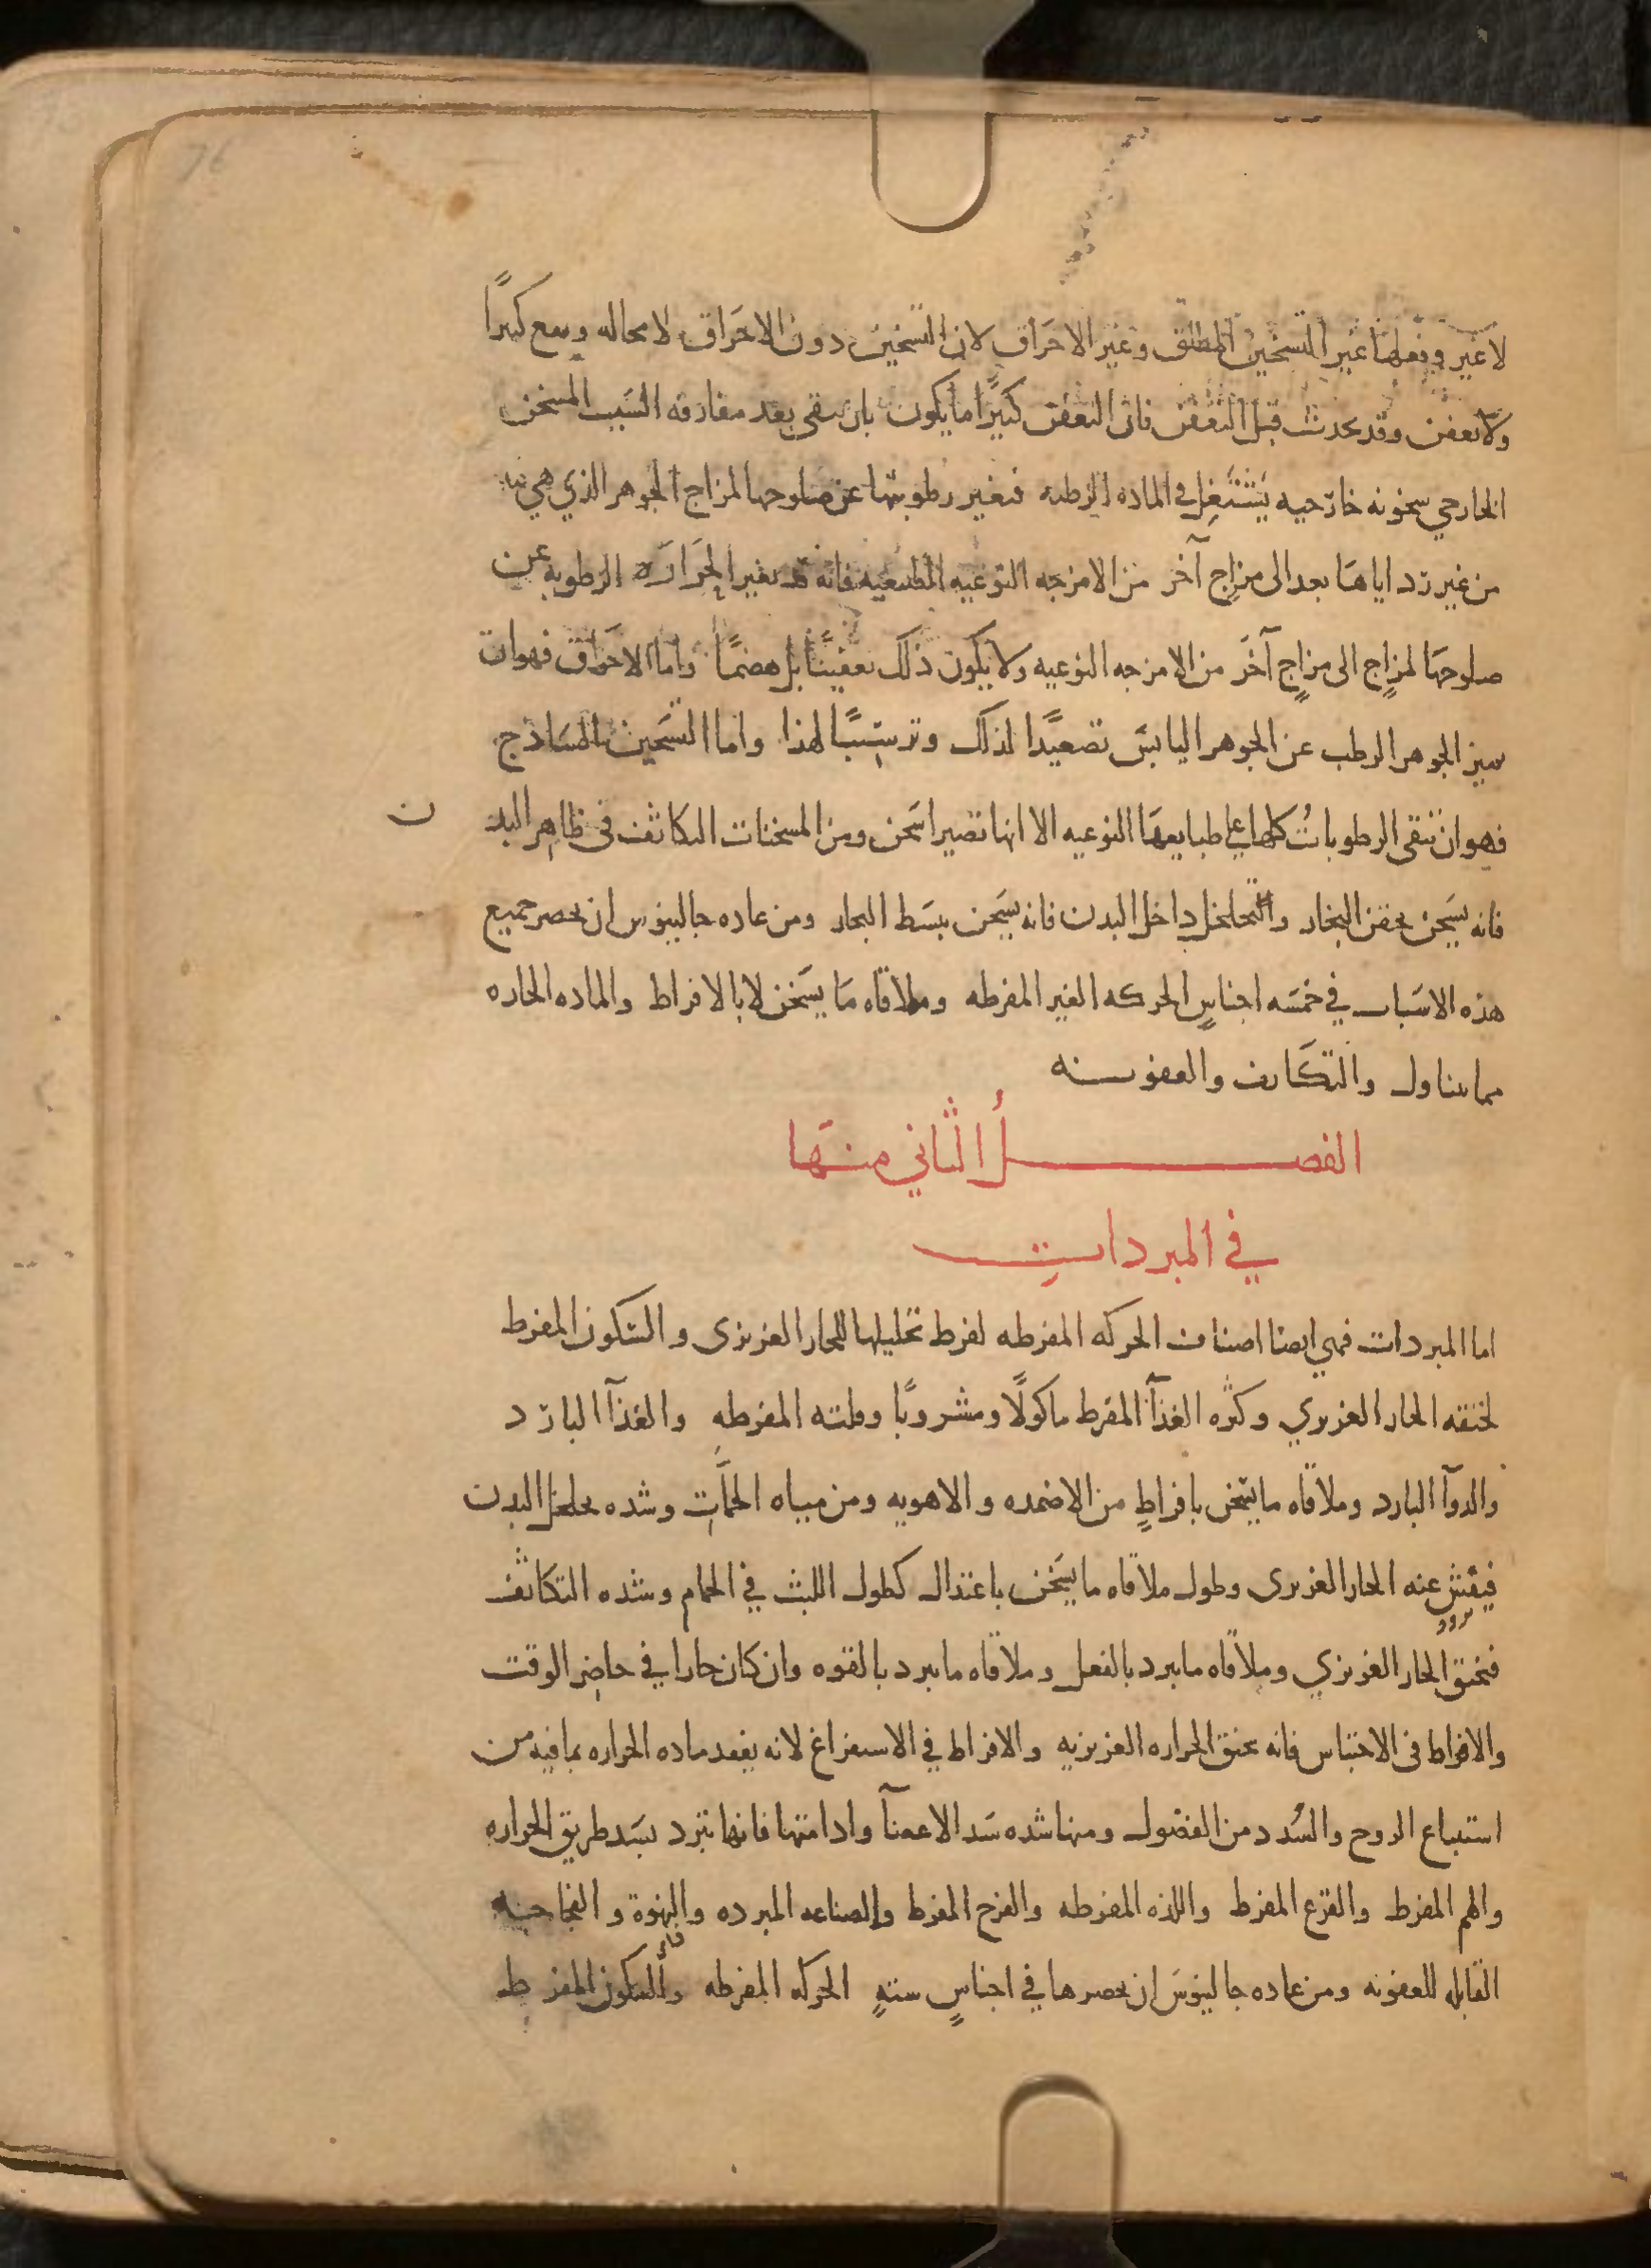 76
لا غير وفعلها غير التسخين المطلق وغير الاحراق لان التسخين دون الاحراق لا محاله ويقع كثيرًا
ولا تعفن وقد يحدث قبل التعفن فان التعفن كثيرًا ما يكون بان تبقى بعد مفارقه السبب المسخن
الخارجي سخونه خارجيه يشتغل في الماده الرطبه فتغير رطوبتها عن صلوحها لمزاج الجوهر الذي هي فيه
من غير رد اياها بعد الى مزاج آخر من الامزجه النوعيه الطبيعيه فانه قد يغير الحراره الرطوبة عن
صلوحها لمزاجٍ الى مزاجٍ آخر من الامزجه النوعيه ولا يكون ذلك تعفينًا بل هضمًا واما الاحراق فهو ان
يميز الجوهر الرطب عن الجوهر اليابس تصعيدًا لذلك وترسيبًا لهذا واما التسخين الساذج
فهو ان تبقى الرطوبات كلها على طبايعها النوعيه الا انها تصير اسخن ومن المسخنات التكاثف في ظاهر البدن
فانه يسخن بحقن البخار والتخلخل داخل البدن فانه يسخن ببسط البخار ومن عاده جالينوس ان يحصر جميع
هذه الاسباب في خمسه اجناسٍ الحركه الغير المفرطه وملاقاه ما يسخن لا بالافراط والماده الحاره
مما يتناول والتكاثف والعفونه
الفصل الثاني منها
في المبردات
اما المبردات فهي ايضا اصناف الحركه المفرطه لفرط تحليلها للحار الغريزى والسكون المفرط
لخنقه الحار الغريزي وكثره الغذآ المفرط ماكولًا ومشروبًا وقلته المفرطه والغذآ البارد
والدوآ البارد وملاقاه ما يسخن بافراطٍ من الاضمده والاهويه ومن مياه الحمآت وشده تخلخل البدن
فيفش عنه الحار الغريزى وطول ملاقاه ما يسخن باعتدال كطول اللبث في الحمام وشده التكاثف
فيخنق الحار الغريزي وملاقاه ما يبرد بالفعل وملاقاه ما يبرد بالقوه وان كان حارا في حاضر الوقت
والافراط فى الاحتباس فانه يخنق الحراره الغريزيه والافراط في الاستفراغ لانه يفقد ماده الحراره بما فيه من
استتباع الروح والسُدد من الفضول ومنها شده سَد الاعضآ وادامتها فانها تبرد بسَد طريق الحراره
والهم المفرط والفزع المفرط واللذه المفرطه والفرح المفرط والصناعه المبرده والنهوة والفجاجه
القابله للعفونه ومن عاده جالينوس ان يحصرها في اجناسٍ ستةٍ الحركه المفرطه والسكون المفرط